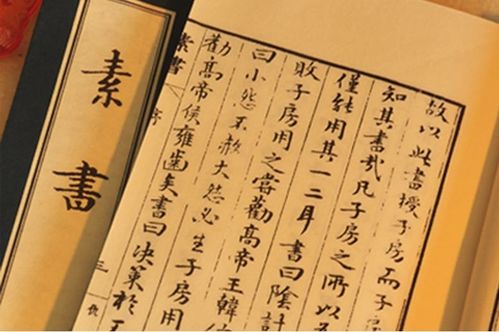 素書
故以此書授子房而子
知其書哉凡子房之所以
僅能用其一二耳書曰陰計
敗子房用之嘗勸高帝王韓
曰小怨不赦大怨必生子房用
勸高帝侯雍齒矣書曰決策於
素書 序 三